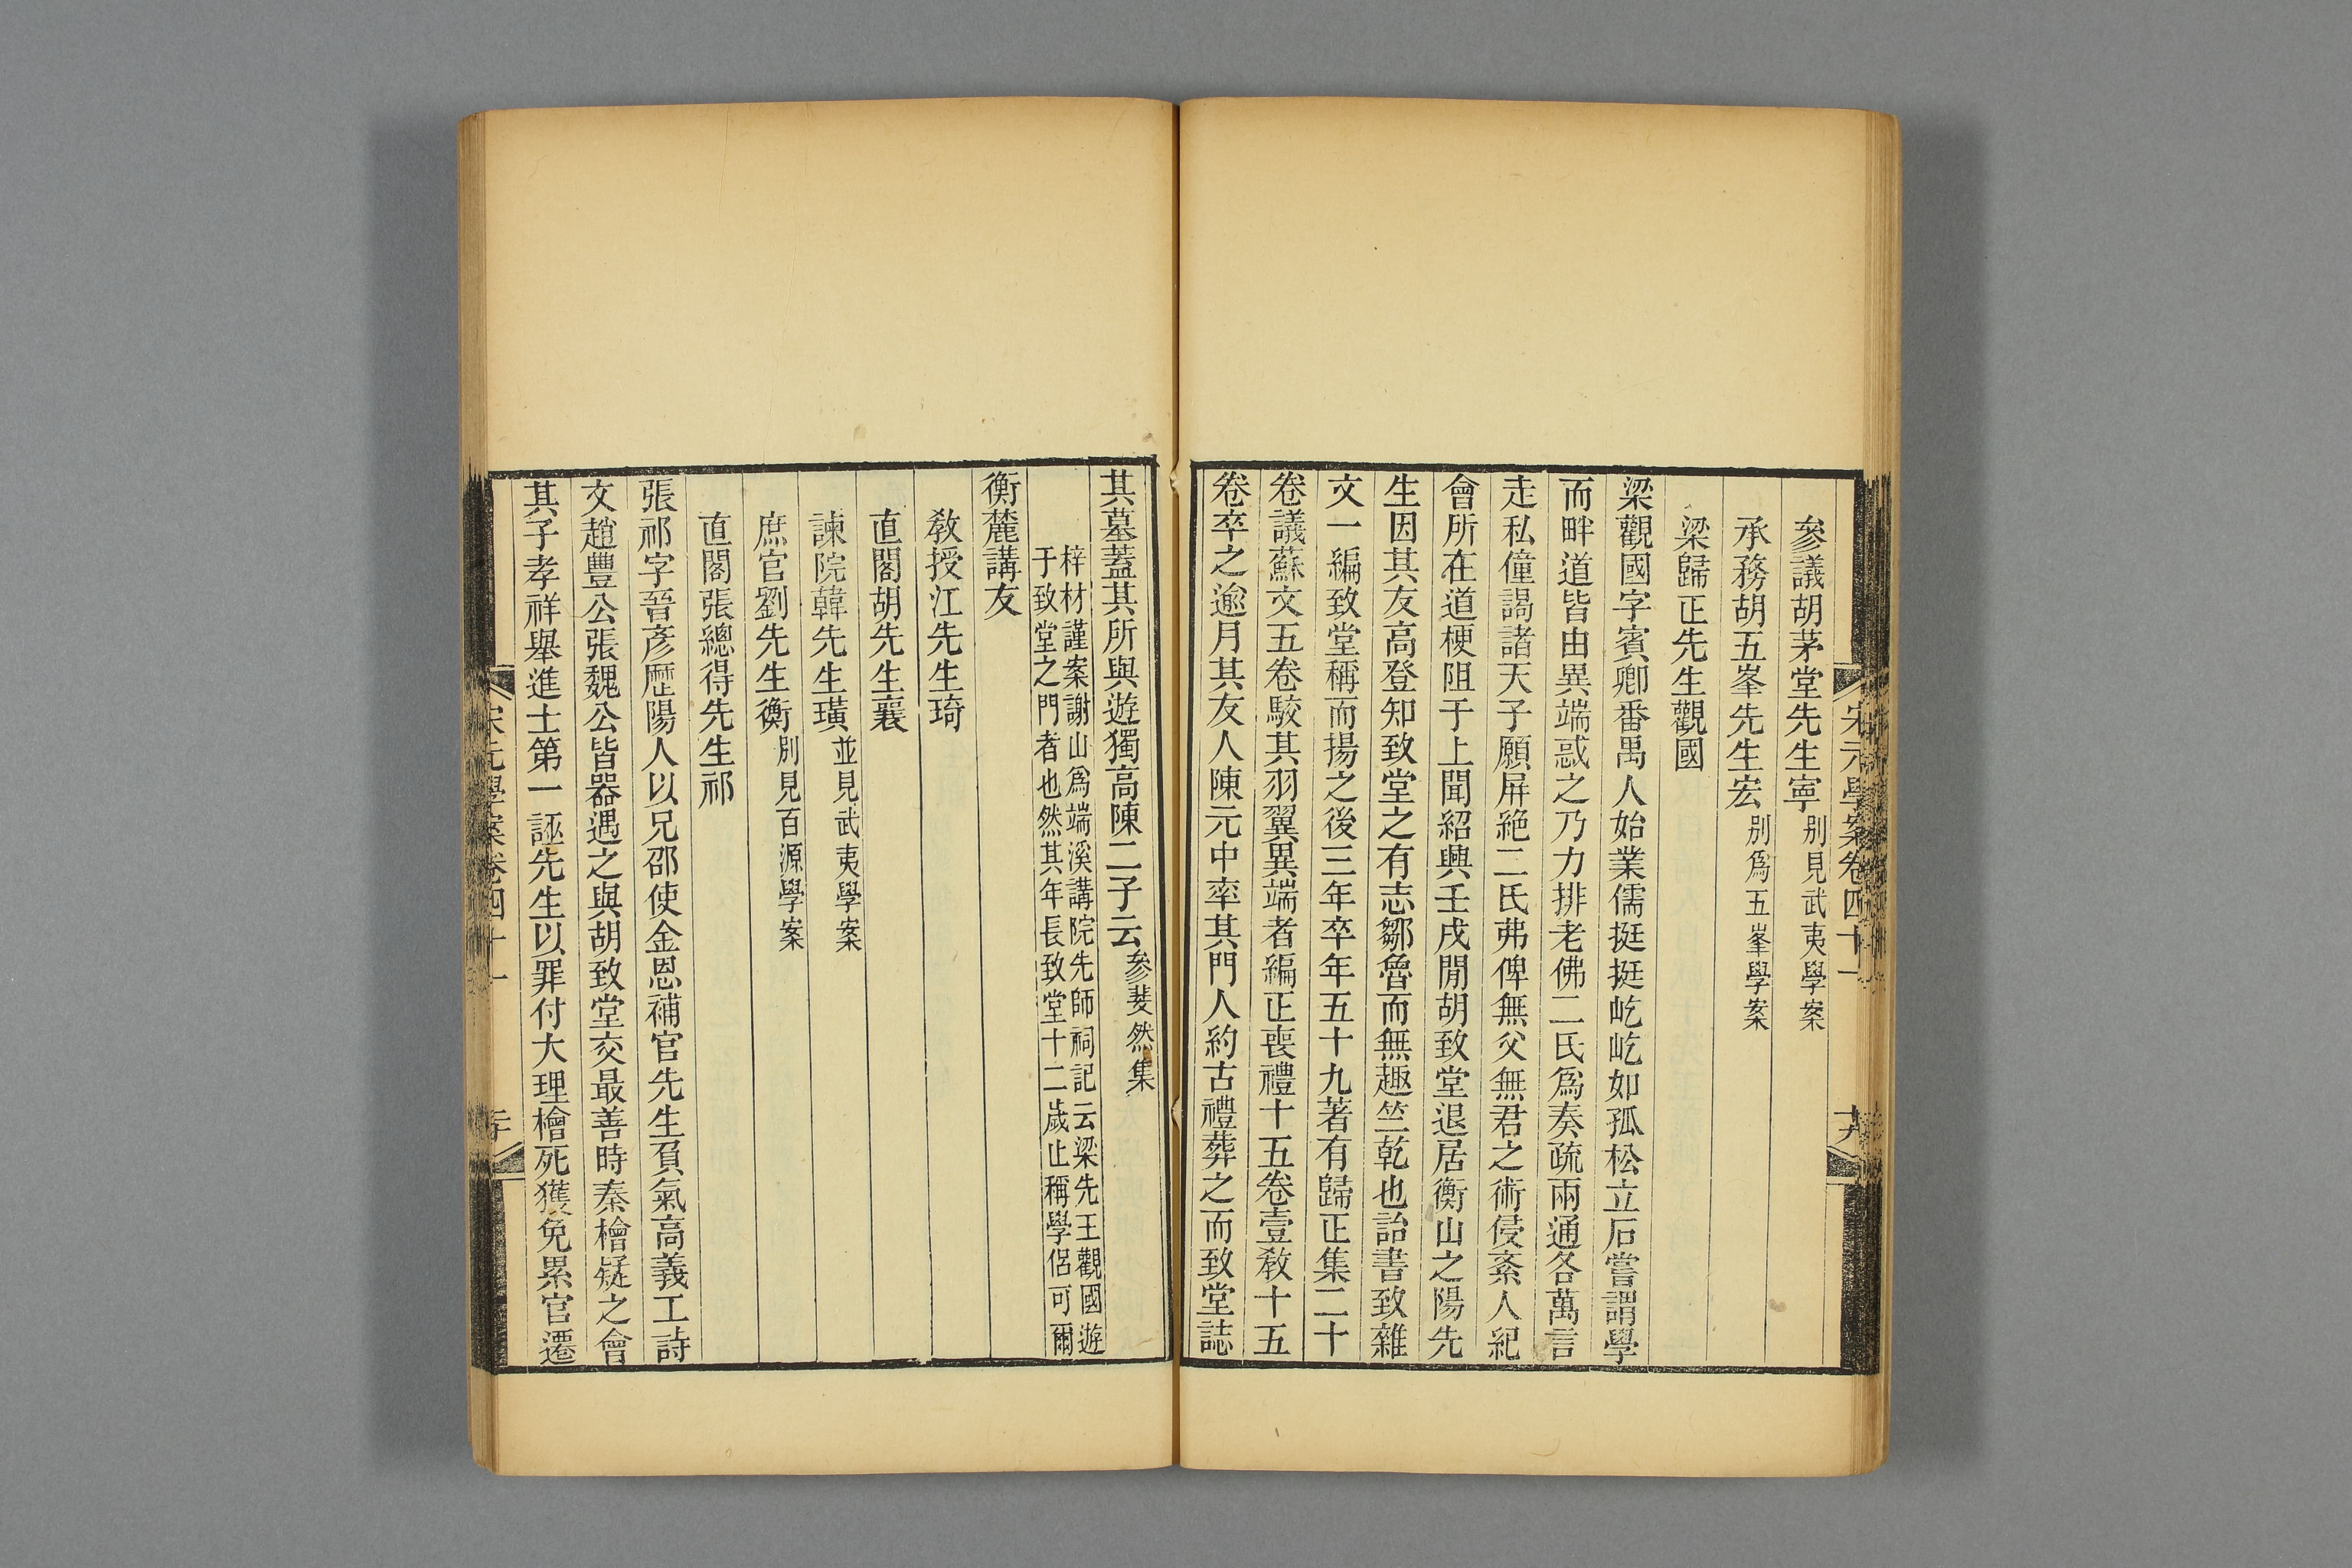 宋元學案卷四十一
十九
參議胡茅堂先生寧 別見武夷學案
承務胡五峯先生宏 別爲五峯學案
梁歸正先生觀國
梁觀國字賓卿番禺人始業儒挺挺屹屹如孤松立石嘗謂學
而畔道皆由異端惑之乃力排老佛二氏爲奏疏兩通各萬言
走私僮謁諸天子願屏絶二氏弗俾無父無君之術侵紊人紀
會所在道梗阻于上聞紹興壬戌閒胡致堂退居衡山之陽先
生因其友高登知致堂之有志鄒魯而無趣竺乾也詒書致雜
文一編致堂稱而揚之後三年卒年五十九著有歸正集二十
卷議蘇文五卷駮其羽翼異端者編正喪禮十五卷壼教十五
卷卒之逾月其友人陳元中率其門人約古禮葬之而致堂誌
其墓蓋其所與遊獨高陳二子云 參斐然集
梓材謹案謝山爲端溪講院先師祠記云梁先王觀國遊
于致堂之門者也然其年長致堂十二歲止稱學侶可爾
衡麓講友
教授江先生琦
直閣胡先生襄
諫院韓先生璜 並見武夷學案
庶官劉先生衡 別見百源學案
直閣張總得先生祁
張祁字晉彥歷陽人以兄邵使金恩補官先生負氣高義工詩
文趙豐公張魏公皆器遇之與胡致堂交最善時秦檜疑之會
其子孝祥舉進士第一誣先生以罪付大理檜死獲免累官遷
宋元學案卷四十一